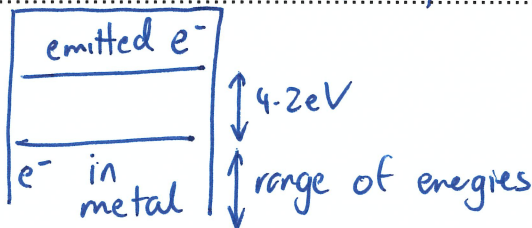 emitted e⁻
4.2eV
e⁻ in
metal
range of energies